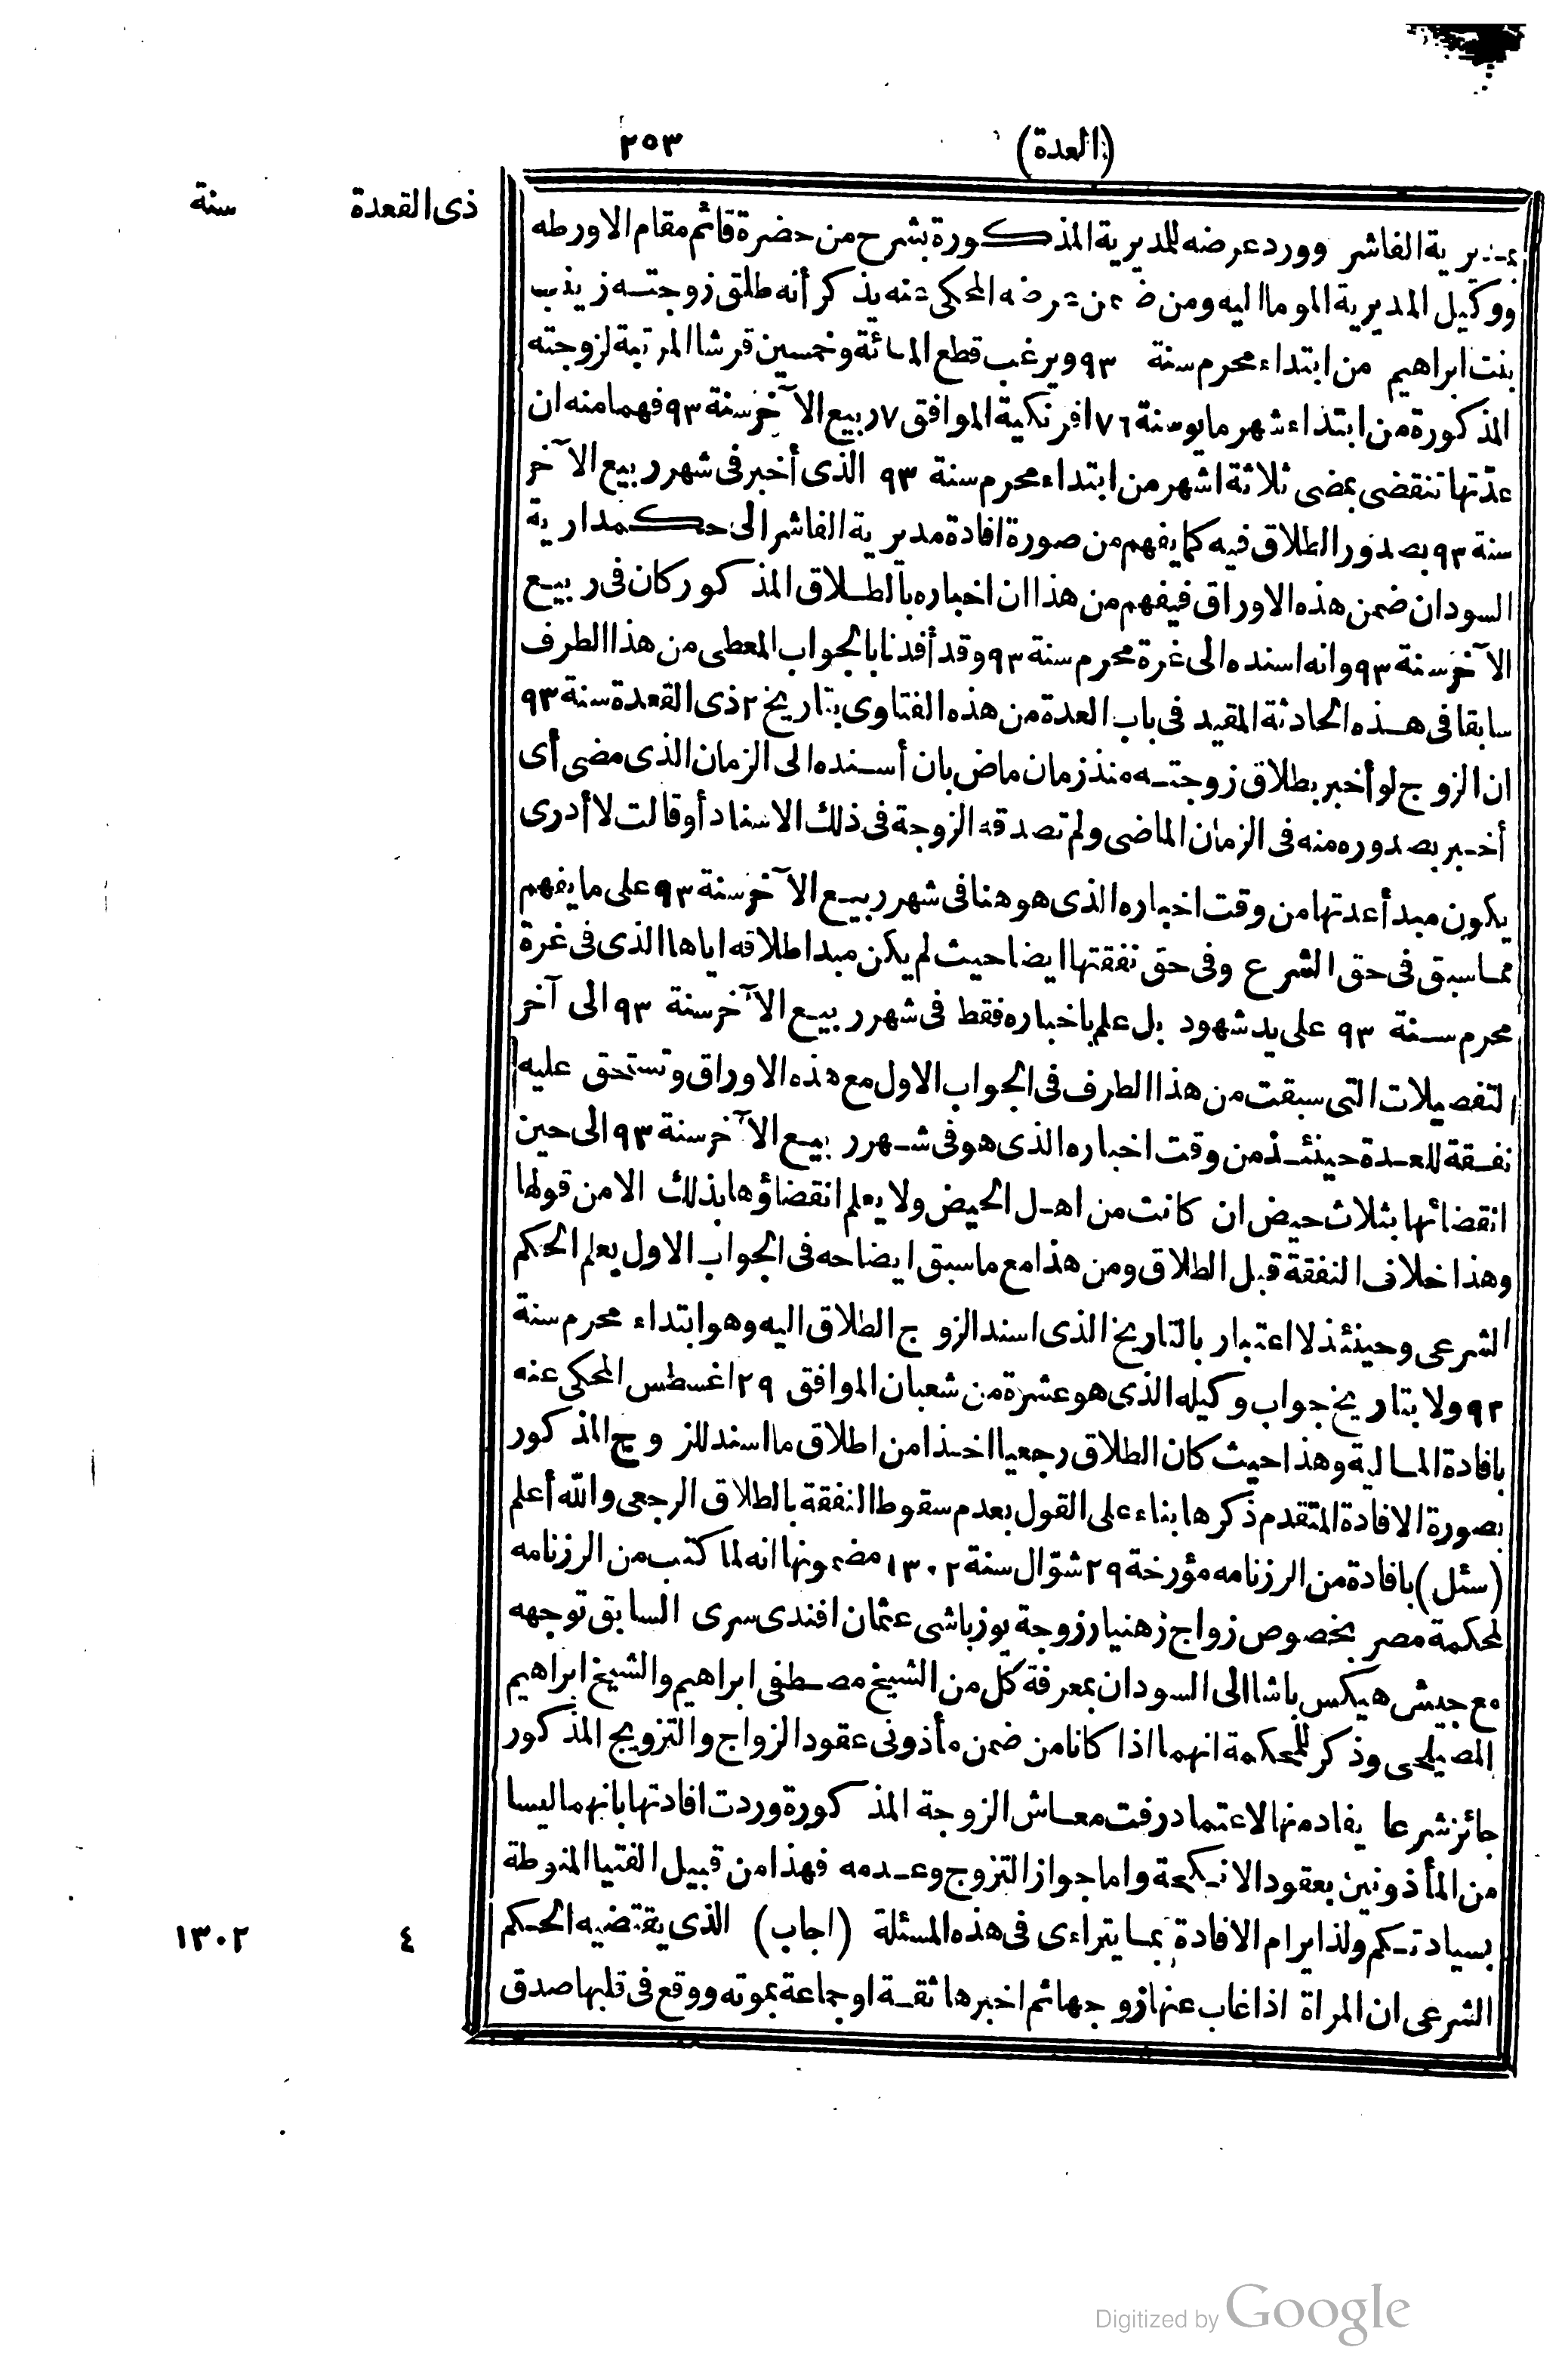 (العدة) ٢٥٣
ذى القعدة سنة
بمديرية الفاشر وورد عرضه للمديرية المذكورة بشرح من حضرة قائم مقام الاورطه
ووكيل المديرية الموما اليه ومن ضمن عرضه المحكى عنه يذكر أنه طلق زوجته زينب
بنت ابراهيم من ابتداء محرم سنة ٩٣ ويرغب قطع المائة وخمسين قرشا المرتبة لزوجته
المذكورة من ابتداء شهر مايو سنة ٧٦ افرنكية الموافق ٧ ربيع الآخر سنة ٩٣ فهما منه ان
عدّتها تنقضى بمضى ثلاثة اشهر من ابتداء محرم سنة ٩٣ الذى أخبر فى شهر ربيع الآخر
سنة ٩٣ بصدور الطلاق فيه كما يفهم من صورة افادة مديرية الفاشر الى حكمدارية
السودان ضمن هذه الاوراق فيفهم من هذا ان اخباره بالطلاق المذكور كان فى ربيع
الآخر سنة ٩٣ وانه اسنده الى غرة محرم سنة ٩٣ وقد أفدنا بالجواب المعطى من هذا الطرف
سابقا فى هذه الحادثة المقيد فى باب العدة من هذه الفتاوى بتاريخ ٢ ذى القعدة سنة ٩٣
ان الزوج لو أخبر بطلاق زوجته منذ زمان ماض بان أسنده الى الزمان الذى مضى أى
أخبر بصدوره منه فى الزمان الماضى ولم تصدقه الزوجة فى ذلك الاسناد أو قالت لا أدرى
يكون مبدأ عدتها من وقت اخباره الذى هو هنا فى شهر ربيع الآخر سنة ٩٣ على ما يفهم
مما سبق فى حق الشرع وفى حق نفقتها ايضا حيث لم يكن مبدا طلاقه اياها الذى فى غرة
محرم سنة ٩٣ على يد شهود بل علم باخباره فقط فى شهر ربيع الآخر سنة ٩٣ الى آخر
التفصيلات التى سبقت من هذا الطرف فى الجواب الاول مع هذه الاوراق وتستحق عليه
نفقة للعدة حينئذ من وقت اخباره الذى هو فى شهر ربيع الآخر سنة ٩٣ الى حين
انقضائها بثلاث حيض ان كانت من اهل الحيض ولا يعلم انقضاؤها بذلك الا من قولها
وهذا خلاف النفقة قبل الطلاق ومن هذا مع ما سبق ايضاحه فى الجواب الاول يعلم الحكم
الشرعى وحينئذ لا اعتبار بالتاريخ الذى اسند الزوج الطلاق اليه وهو ابتداء محرم سنة
٩٣ ولا بتاريخ جواب وكيله الذى هو عشرة من شعبان الموافق ٢٩ اغسطس المحكى عنه
بافادة المالية وهذا حيث كان الطلاق رجعيا اخذا من اطلاق ما اسند للزوج المذكور
بصورة الافادة المتقدم ذكرها بناء على القول بعدم سقوط النفقة بالطلاق الرجعى والله أعلم
(سئل) بافادة من الرزنامه مؤرخة ٢٩ شوّال سنة ١٣٠٢ مضمونها انه لما كتب من الرزنامه
لمحكمة مصر بخصوص زواج زهنيار زوجة يوزباشى عثمان افندى سرى السابق توجهه
مع جيش هيكس باشا الى السودان بمعرفة كل من الشيخ مصطفى ابراهيم والشيخ ابراهيم
المصيلحى وذكر للمحكمة انهما اذا كانا من ضمن مأذونى عقود الزواج والتزويج المذكور
جائز شرعا يفاد منها لاعتماد رفت معاش الزوجة المذكورة وردت افادتها بانهما ليسا
من المأذونين بعقود الانكحة واما جواز التزوج وعدمه فهذا من قبيل الفتيا المنوطة
بسيادتكم ولذا يرام الافادة بما يتراءى فى هذه المسئلة (اجاب) الذى يقتضيه الحكم ٤ ١٣٠٢
الشرعى ان المراة اذا غاب عنها زوجها ثم اخبرها ثقة او جماعة بموته ووقع فى قلبها صدق
Digitized by Google